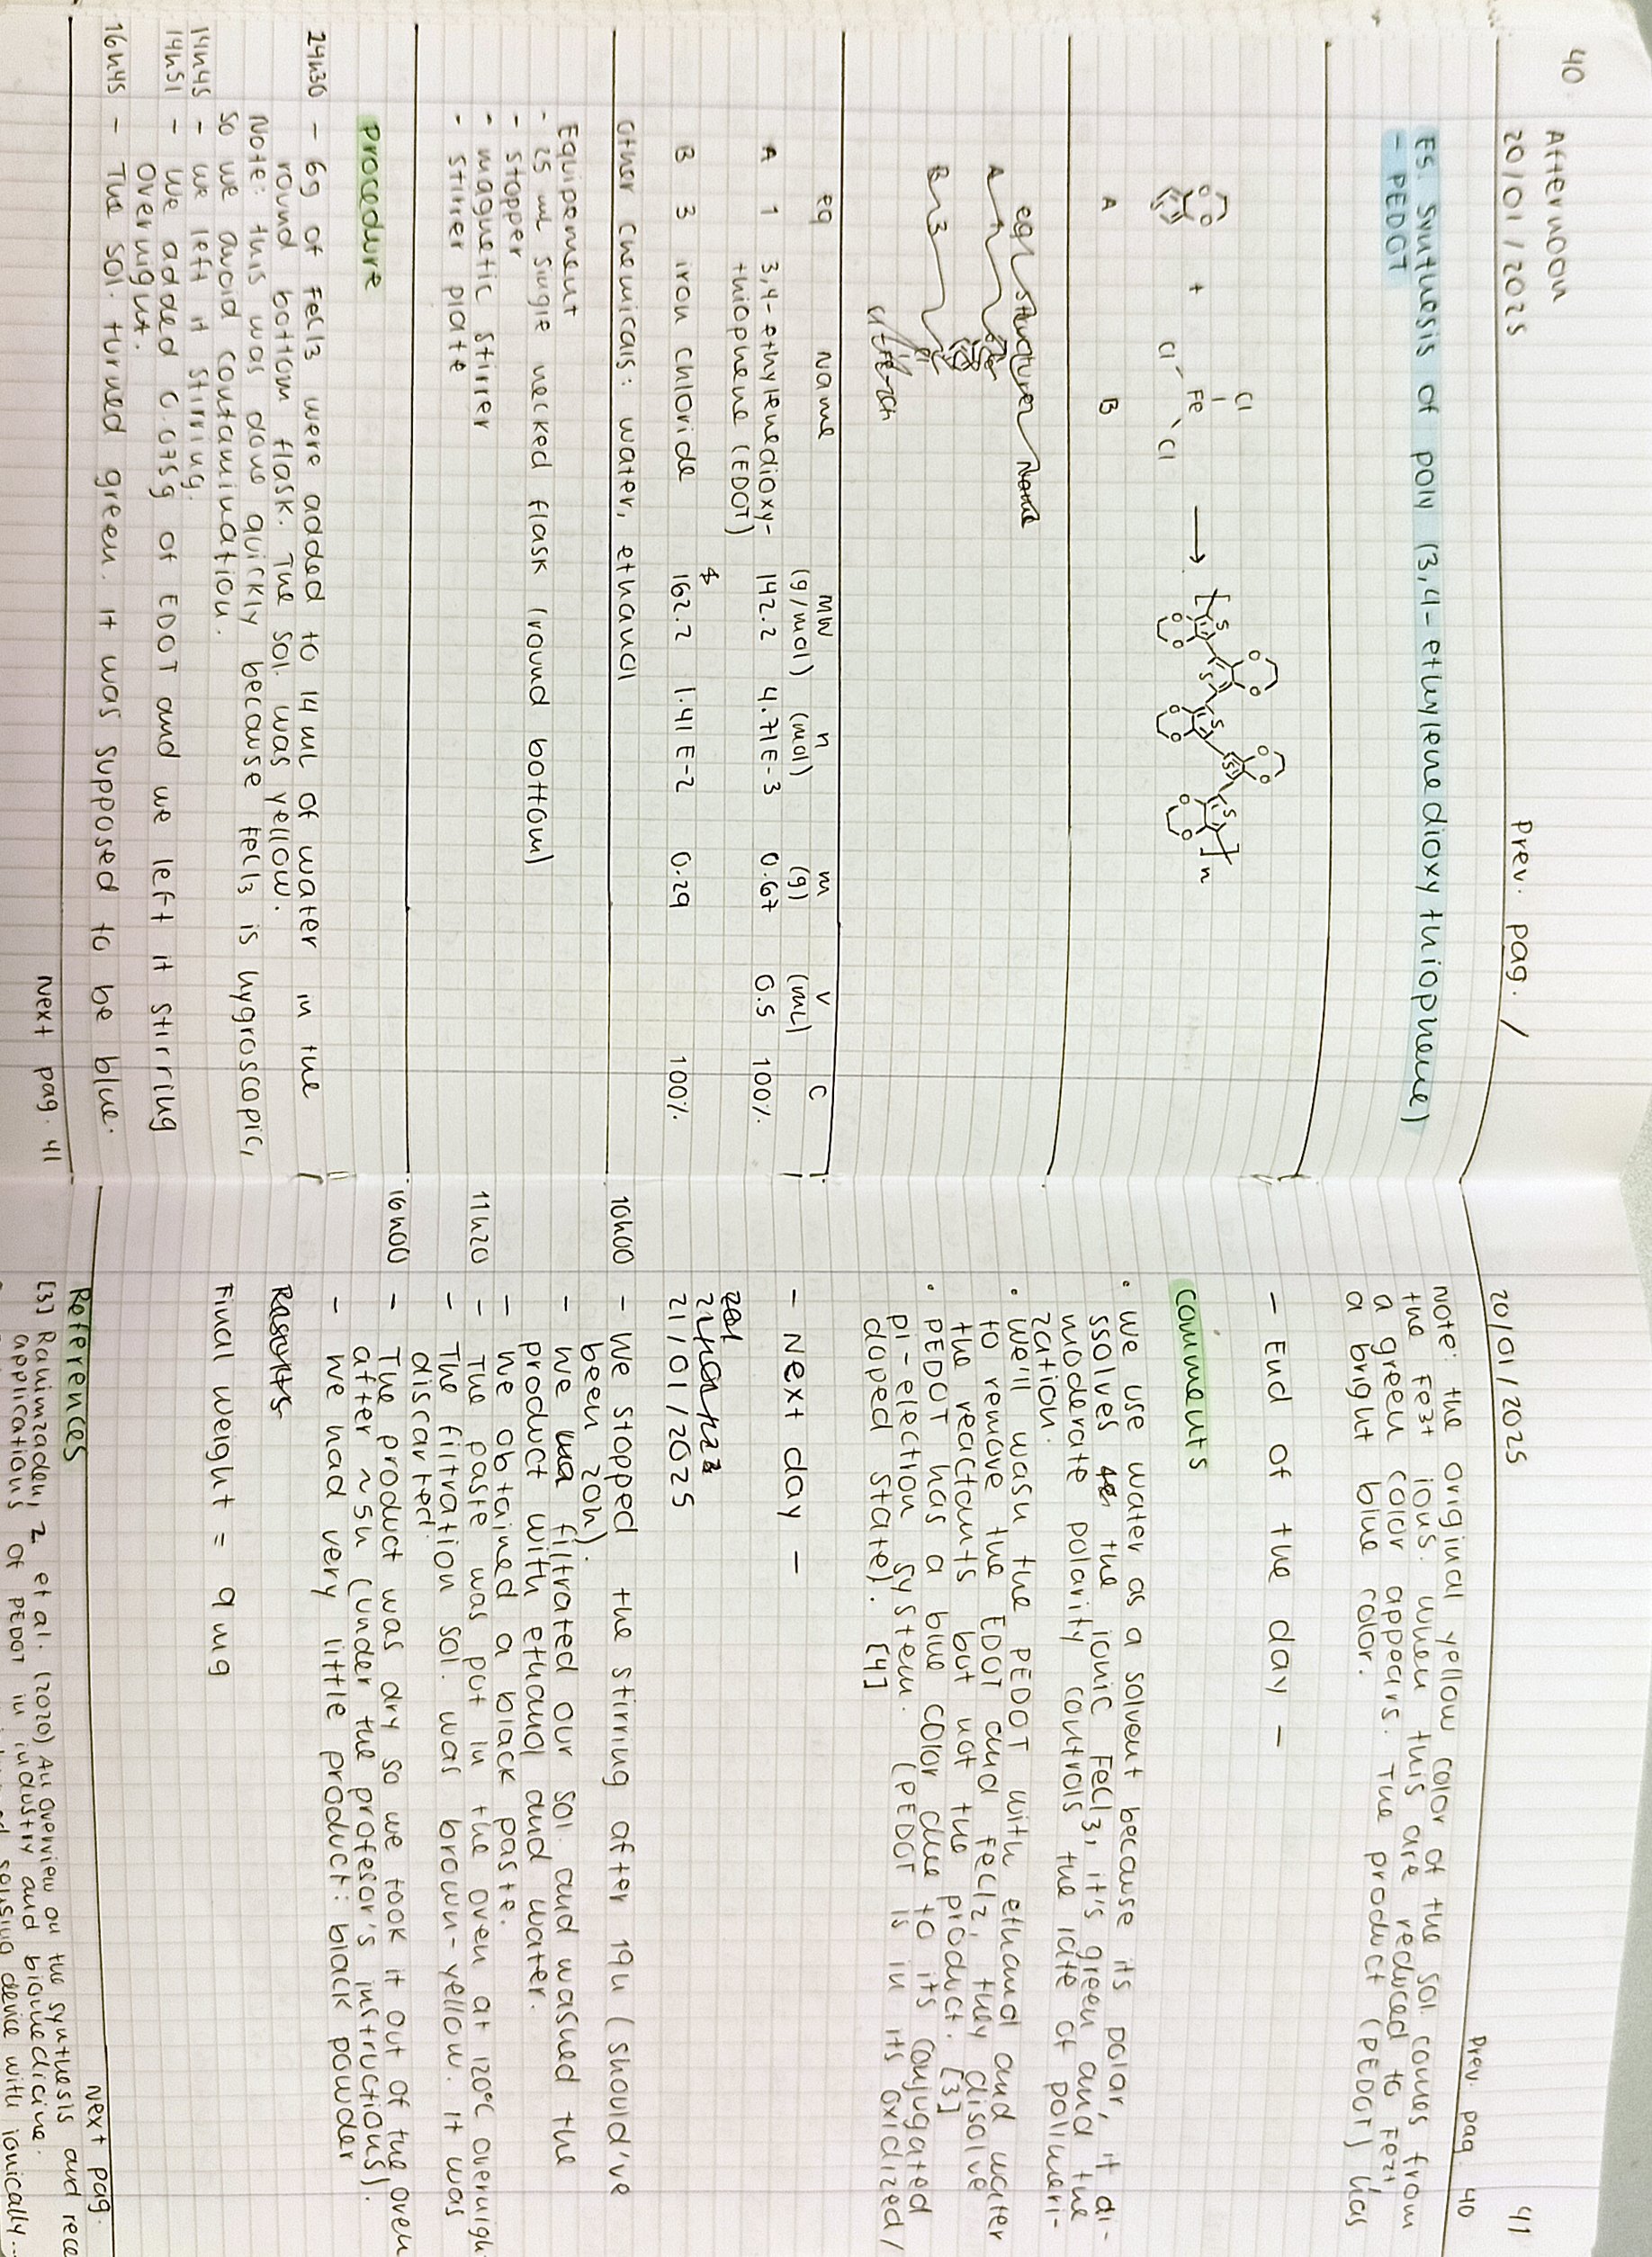 40
Afternoon
20/01/2025
Prev. pag. /
E5. Synthesis of poly (3,4-ethylenedioxythiophene)
- PEDOT
+
Cl
Fe
Cl
Cl
A
B
S
S
S
S
S
O
O
O
O
O
O
O
O
O
O
n
eq
Structure
Name
A
B 3
eq
Name
MW
(g/mol)
n
(mol)
m
(g)
V
(mL)
C
A 1 3,4-ethylenedioxy-
thiophene (EDOT)
142.2 4.71E-3 0.67 0.5 100%
B 3 iron chloride 162.2 1.41E-2 0.29 100%
Other chemicals: water, ethanol
Equipement
- 25 mL single necked flask (round bottom)
- stopper
- magnetic stirrer
- stirrer plate
Procedure
24h30 - 6g of FeCl3 were added to 14 mL of water in the
round bottom flask. The sol. was yellow.
Note: this was done quickly because FeCl3 is hygroscopic,
so we avoid contamination.
14h45 - we left it stirring.
14h51 - we added 0.075g of EDOT and we left it stirring
overnight.
16h45 - The sol. turned green. It was supposed to be blue.
Next pag. 41
41
20/01/2025
Prev. pag. 40
Note: the original yellow color of the sol. comes from
the Fe3+ ions. When this are reduced to Fe2+
a green color appears. The product (PEDOT) has
a bright blue color.
- End of the day -
comments
• we use water as a solvent because its polar, it di-
ssolves the ionic FeCl3, it's green and the
moderate polarity controls the rate of polimeri-
zation.
• we'll wash the PEDOT with ethanol and water
to remove the EDOT and FeCl2, they disolve
the reactants but not the product. [3]
• PEDOT has a blue color due to its conjugated
pi-election system. (PEDOT is in its oxidized/
doped state). [4]
- Next day -
21/01/2025
10h00 - We stopped the stirring after 19h (should've
been 20h).
- We filtrated our sol. and washed the
product with ethanol and water.
- We obtained a black paste.
11h20 - The paste was put in the oven at 120°C overnigh
- The filtration sol. was brown-yellow. It was
discarted.
16h00 - The product was dry so we took it out of the oven
after ~5h (under the profesor's instructions).
- We had very little product: black powder
Results
Final weight = 9 mg
Next pag.
References
[3] Rahimzadeh, Z et al. (2020) An overview on the synthesis and rece
applications of PEDOT in industry and biomedicine.
sensing device with ionically...